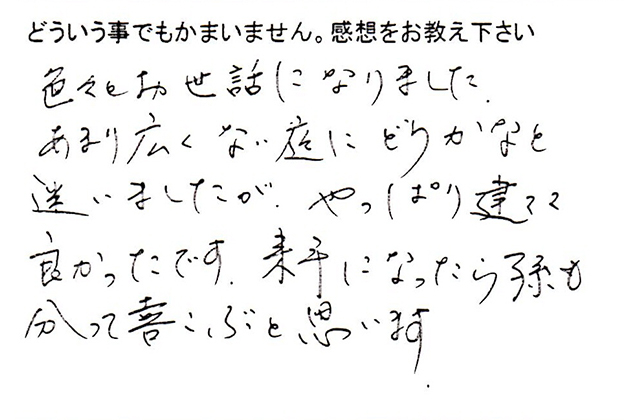 どういう事でもかまいません。感想をお教え下さい
色々とお世話になりました.
あまり広くない庭にどうかなと
迷いましたが.やっぱり建てて
良かったです.来年になったら孫も
分って喜こぶと思います.